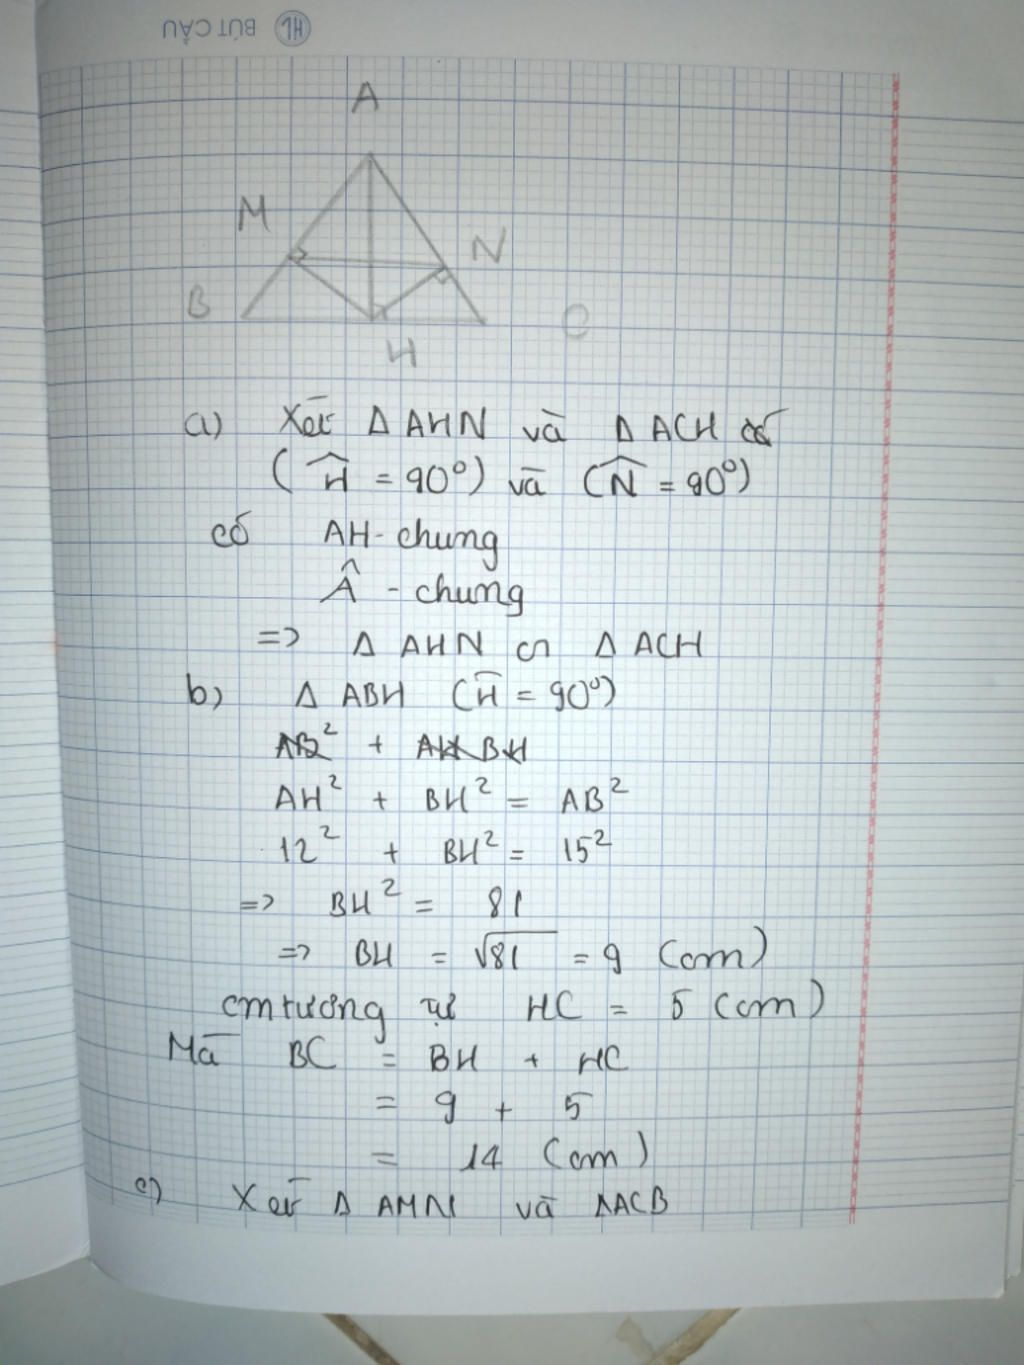 HL BÚT CẦU
A
M
N
B
C
H
a) Xét Δ AHN và Δ ACH có
(Ĥ = 90°) và (N̂ = 90°)
có AH - chung
Â - chung
=> Δ AHN ∽ Δ ACH
b) Δ ABH (Ĥ = 90°)
AB² + AH BH
AH² + BH² = AB²
12² + BH² = 15²
=> BH² = 81
=> BH = √81 = 9 (cm)
cm tương tự HC = 5 (cm)
Mà BC = BH + HC
= 9 + 5
= 14 (cm)
c) Xét Δ AMN và ΔACB